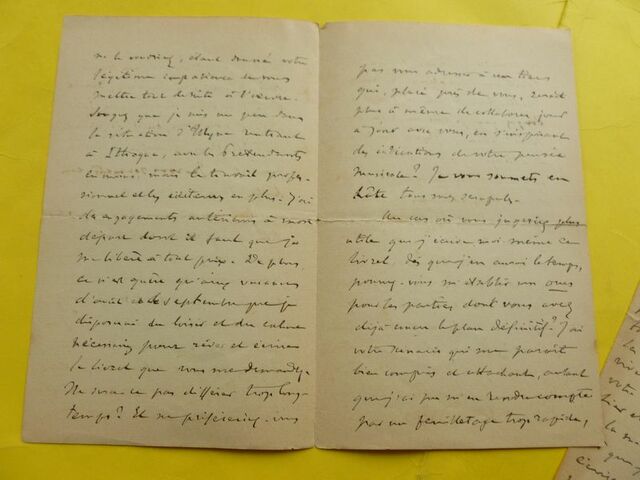 ne le voudriez, étant donné votre
légitime impatience de vous
mettre tout de suite à l'œuvre.
Songez que je suis un peu dans
la situation d'Ulysse rentrant
à Ithaque, avec les Prétendants
en moins, mais le travail profes-
sionnel et les éditeurs en plus. J'ai
des engagements antérieurs à mon
départ dont il faut que je
me libère à tout prix. De plus,
ce n'est guère qu'aux vacances
d'août et de septembre que je
disposerai du loisir et du calme
nécessaires pour rêver et écrire
le livret que vous me demandez.
Ne sera-ce pas différer trop long-
temps? Et ne préféreriez-vous
pas vous adresser à un tiers
qui, placé près de vous, serait
plus à même de collaborer jour
à jour avec vous, en s'inspirant
des indications de votre pensée
musicale? Je vous soumets en
hâte tous mes scrupules.
Au cas où vous jugeriez plus
utile que j'écrive moi-même ce
livret, dès que j'en aurai le temps,
pourrez-vous m'établir un
pour les parties dont vous avez
déjà conçu le plan définitif? J'ai
votre qui me paraît
bien compris et attachant, autant
que j'ai pu m'en rendre compte
par un feuilletage trop rapide,
la
votre
la